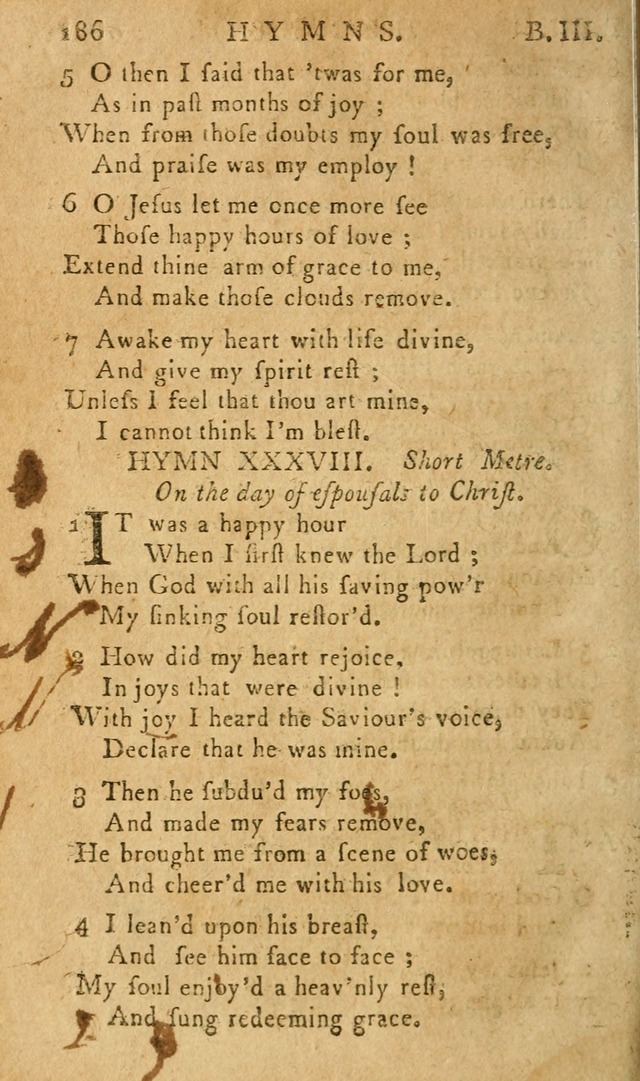 186 HYMNS. B.III.
5 O then I ſaid that 'twas for me,
As in paſt months of joy ;
When from thoſe doubts my ſoul was free,
And praiſe was my employ !
6 O Jeſus let me once more ſee
Thoſe happy hours of love ;
Extend thine arm of grace to me,
And make thoſe clouds remove.
7 Awake my heart with life divine,
And give my ſpirit reſt ;
Unleſs I feel that thou art mine,
I cannot think I'm bleſt.
HYMN XXXVIII. Short Metre.
On the day of eſpouſals to Chriſt.
1 IT was a happy hour
When I firſt knew the Lord ;
When God with all his ſaving pow'r
My ſinking ſoul reſtor'd.
2 How did my heart rejoice,
In joys that were divine !
With joy I heard the Saviour's voice,
Declare that he was mine.
3 Then he ſubdu'd my foes,
And made my fears remove,
He brought me from a ſcene of woes,
And cheer'd me with his love.
4 I lean'd upon his breaſt,
And ſee him face to face ;
My ſoul enjoy'd a heav'nly reſt,
And ſung redeeming grace.